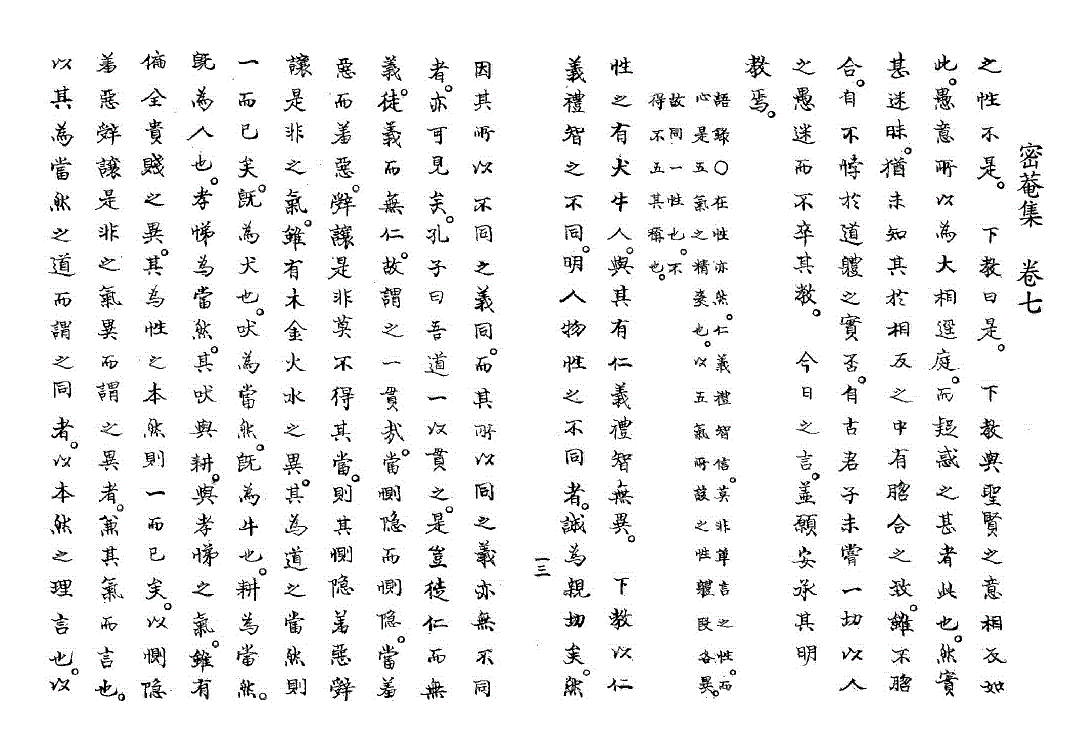 密菴集 卷七
之性不是。 下教曰是。 下教與聖賢之意相反如
此。愚意所以為大相逕庭。而疑惑之甚者此也。然實
甚迷昧。猶未知其於相反之中有脗合之致。雖不脗
合。自不悖於道體之實否。有古君子未嘗一切以人
之愚迷而不卒其教。 今日之言。蓋願安承其明
教焉。
語錄○在性亦然。仁義禮智信。莫非單言之性。而
心是五氣之精爽也。以五氣所該之性體段各異。
故同一性也。不
得不五其稱也。
性之有犬牛人。與其有仁義禮智無異。 下教以仁
義禮智之不同。明人物性之不同者。誠為親切矣。然
一三
因其所以不同之義同。而其所以同之義亦無不同
者。亦可見矣。孔子曰吾道一以貫之。是豈徒仁而無
義。徒義而無仁。故謂之一貫哉。當惻隐而惻隐。當羞
惡而羞惡。辭讓是非莫不得其當。則其惻隐羞惡辭
讓是非之氣。雖有木金火水之異。其為道之當然則
一而已矣。旣為犬也。吠為當然。旣為牛也。耕為當然。
旣為人也。孝悌為當然。其吠與耕。與孝悌之氣。雖有
偏全貴賤之異。其為性之本然則一而已矣。以惻隐
羞惡辭讓是非之氣異而謂之異者。兼其氣而言也。
以其為當然之道而謂之同者。以本然之理言也。以